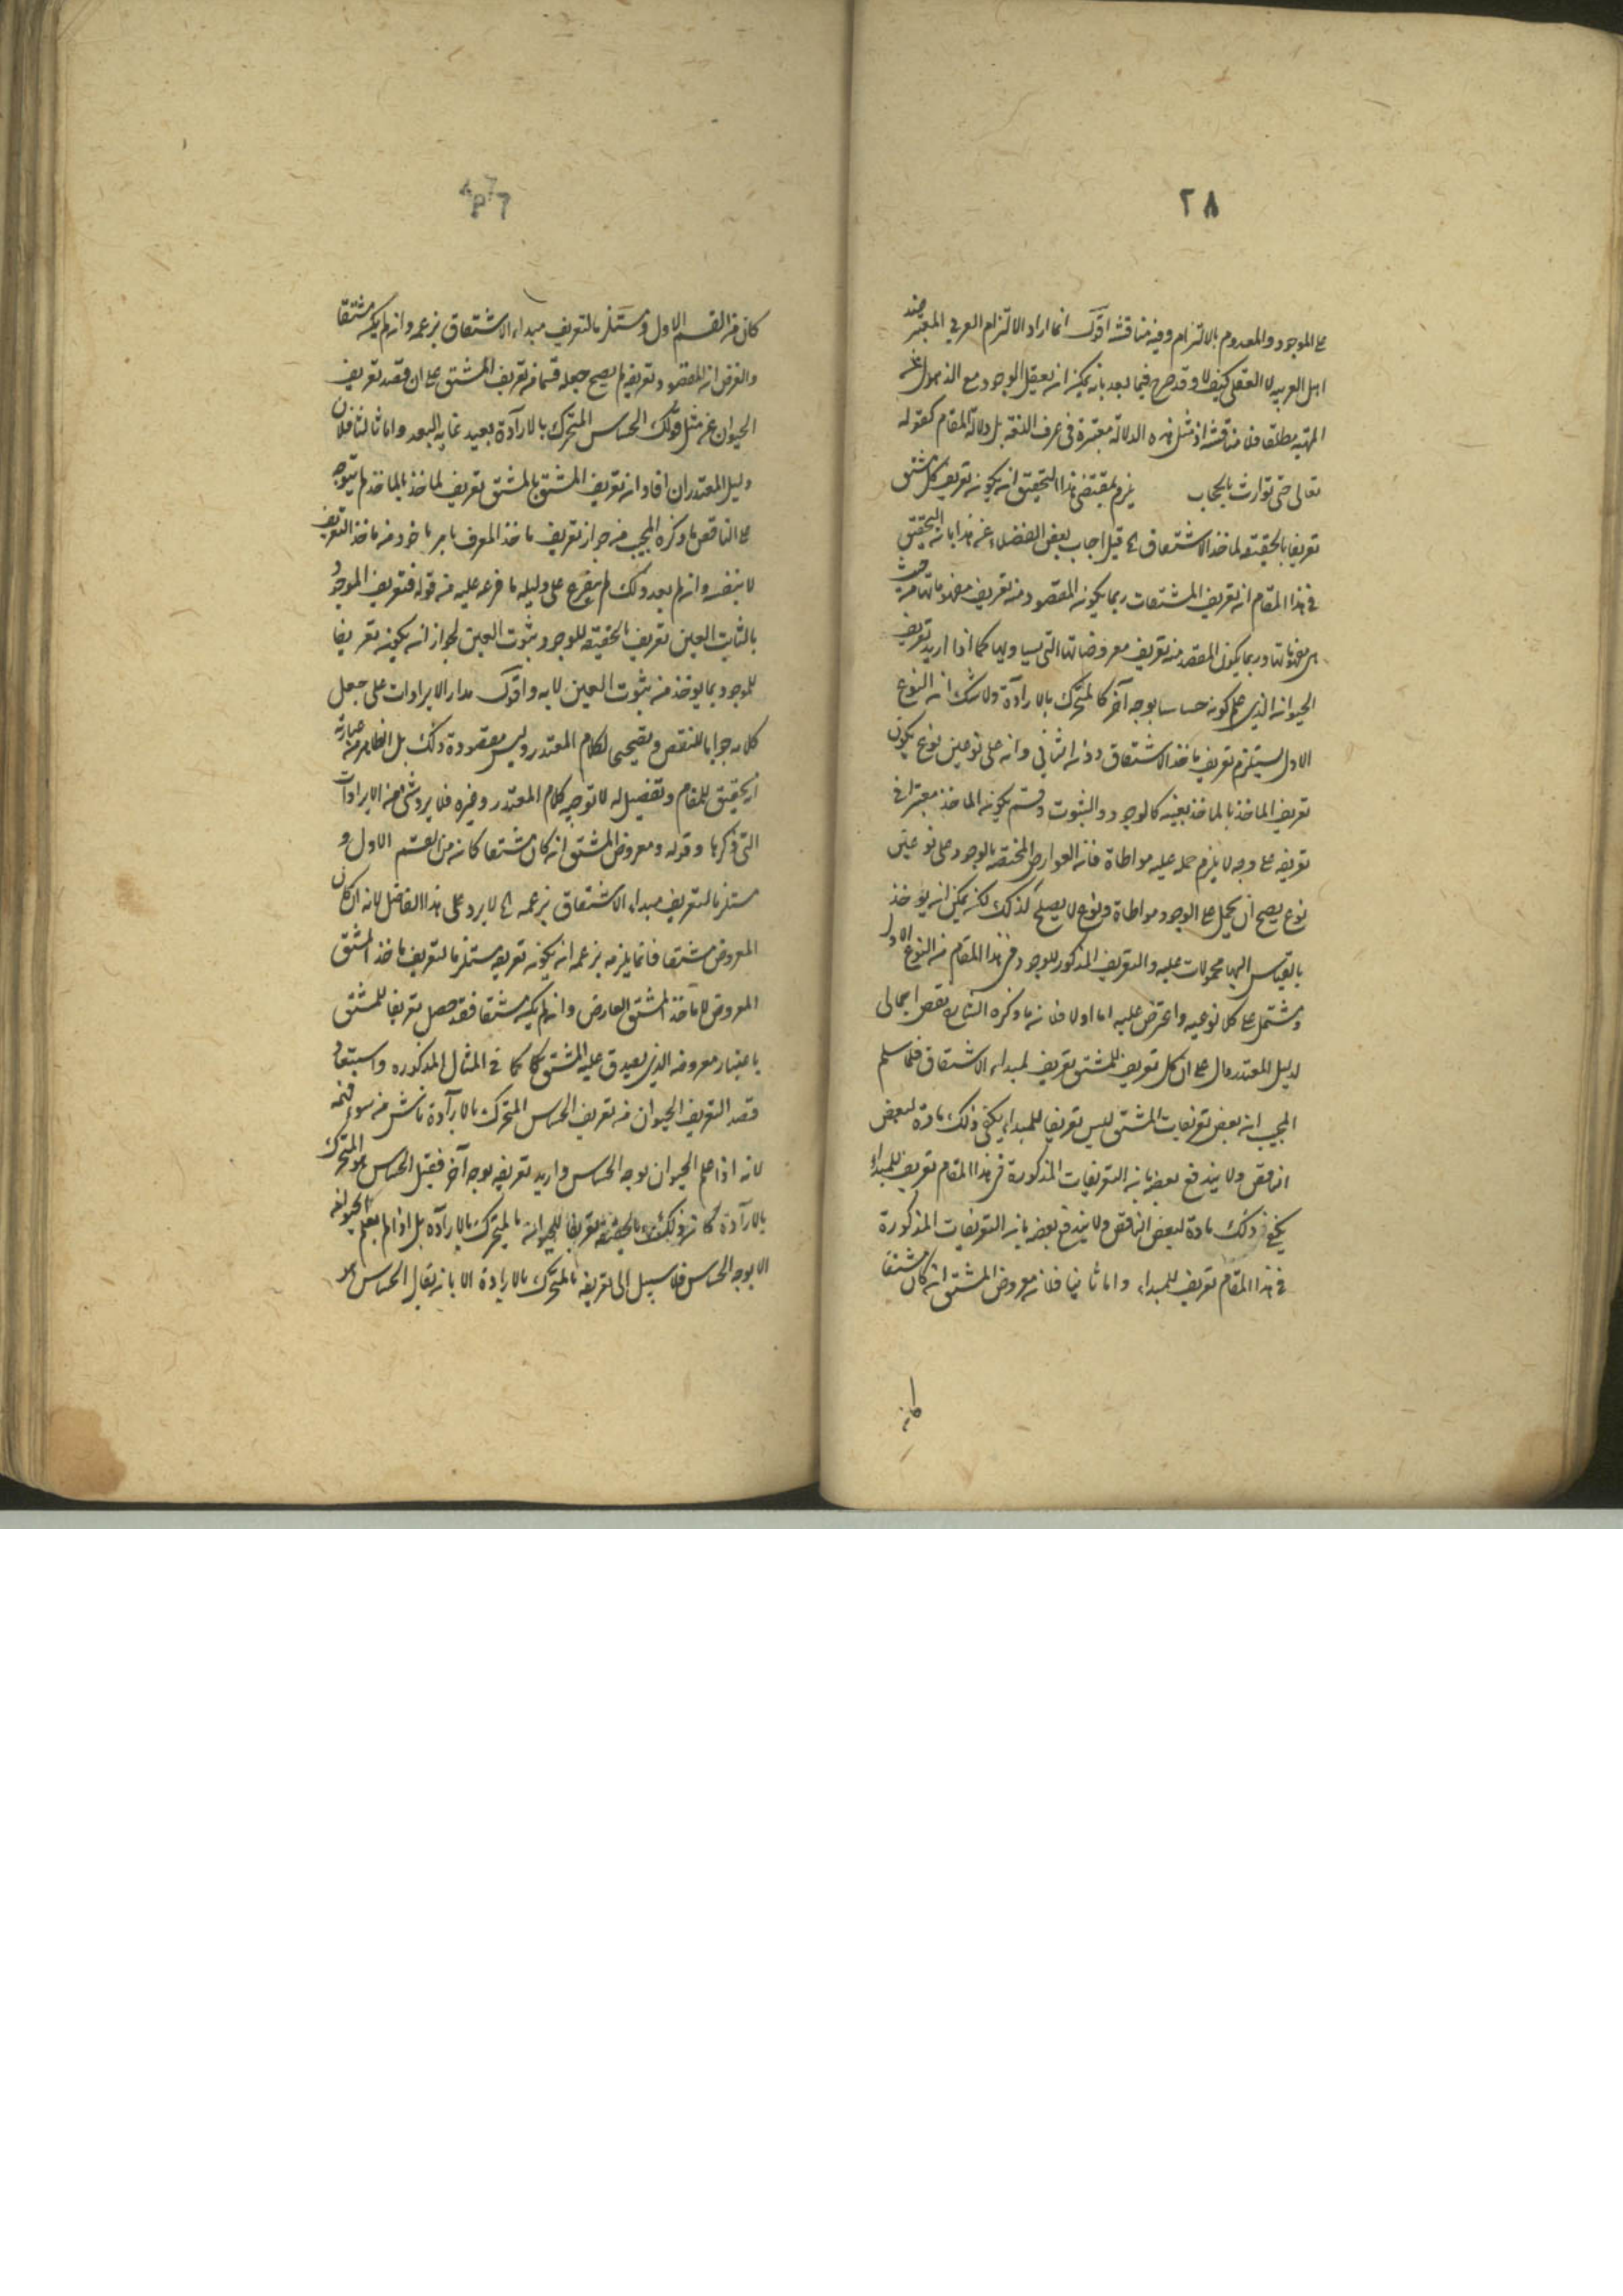 ٢٨
على الموجود والمعدوم بالالتزام وفيه مناقشة اقول انما اراد الالتزام العرفي المعتبر عند
اهل العربيه لا العقلي كيف لا وقد صرح فيما بعد بانه يمكن ان يعقل الوجود مع الذهول عن
المهية مطلقا فلا مناقشة اذ مثل هذه الدلالة معتبرة في عرف اللغة بل دلالة المقام كقوله
تعالى حتى توارت بالحجاب يلزم بمقتضى هذا التحقيق ان يكون تعريف كل مشتق
تعريفا بالحقيقة لماخذ الاشتقاق قيل اجاب بعض الفضلاء عن هذا بان التحقيق
في هذا المقام ان تعريف المشتقات ربما يكون المقصود منه تعريف مفهوماتها من حيث
هي مفهوماتها وربما يكون المقصد منه تعريف معروضاتها التي يساويها كما اذا اريد تعريف
الحيوان الذي علم كونه حساسا بوجه آخر كالمتحرك بالارادة ولا شك ان النوع
الاول يستلزم تعريف ماخذ الاشتقاق دون الثاني وانه على نوعين نوع يكون
تعريف الماخذ بالماخذ بعينه كالوجود والثبوت وقسم يكون الماخذ معتبرا في
تعريفه على وجه لا يلزم حمله عليه مواطاة فان العوارض المختصة بالوجود على نوعين
نوع يصح ان يحمل على الوجود مواطاة ونوع لا يصلح لذلك لكن يمكن ان يؤخذ
بالقياس اليها محمولات عليه والتعريف المذكور للوجود في هذا المقام من النوع الاول
ومشتمل على كلا نوعيه واعترض عليه اما اولا فلان ما ذكره الشارح نقض اجمالي
لدليل المعتدر دال على ان كل تعريف للمشتق تعريف لمبداء الاشتقاق فلما سلم
المجيب ان بعض تعريفات المشتق ليس تعريفا للمبداء يكفي ذلك مادة لبعض
الناقض ولا يندفع بعضه بان التعريفات المذكورة في هذا المقام تعريف للمبداء
يكفي ذلك مادة لبعض الناقض ولا يندفع بعضه بان التعريفات المذكورة
في هذا المقام تعريف للمبداء واما ثانيا فلان معروض المشتق ان كان مشتقا
كان
كان من القسم الاول ومستلزما لتعريف مبداء الاشتقاق بزعمه وان لم يكن مشتقا
والغرض ان المقصود تعريفه لم يصح جعله قسما من تعريف المشتق على ان قصد تعريف
الحيوان عن مثل قولك الحساس المتحرك بالارادة بعيد غاية البعد واما ثالثا فلان
دليل المعتدر ان افاد ان تعريف المشتق بالمشتق تعريف لماخذ بالماخذ لم يتوجه
على الناقض ما ذكره المجيب من جواز تعريف ماخذ المعرف بامر ماخوذ من ماخذ التعريف
لا بنفسه وان لم يعد ذلك لم يتفرع على دليله ما فرعه عليه من قوله فتعريف الموجود
بالثابت العين تعريف بالحقيقة للوجود بثبوت العين لجواز ان يكون تعريفا
للموجود بما يوخذ من ثبوت العين لا به واقول مدار الايرادات على جعل
كلامه جوابا للنقض وتصحيحا لكلام المعتدر وليس مقصوده ذلك بل الظاهر من عبارته
انه تحقيق للمقام وتفصيل له لا توجيه كلام المعتدر وغيره فلا يرد شئ من الايرادات
التي ذكرها وقوله ومعروض المشتق ان كان مشتقا كان من القسم الاول و
مستلزما لتعريف مبداء الاشتقاق بزعمه لا يرد على هذا الفاضل لانه ان كان
المعروض مشتقا فانما يلزمه بزعمه ان يكون تعريفه مستلزما لتعريف ماخذ المشتق
المعروض لا ماخذ المشتق العارض وان لم يكن مشتقا فقد حصل تعريفا للمشتق
باعتبار معروضه الذي يصدق عليه المشتق كما في المثال المذكوره واستبعاد
قصد التعريف الحيوان من تعريف الحساس المتحرك بالارادة ناش من سوء فهمه
لانه اذا علم الحيوان بوجه الحساس واريد تعريفه بوجه آخر فقيل الحساس هو المتحرك
بالارادة كان ذلك بالحقيقة تعريفا للحيوان بالمتحرك بالارادة بل اذا لم يعلم الحيوان
الا بوجه الحساس فلا سبيل الى تعريفه بالمتحرك بالارادة الا بان يقال الحساس هو